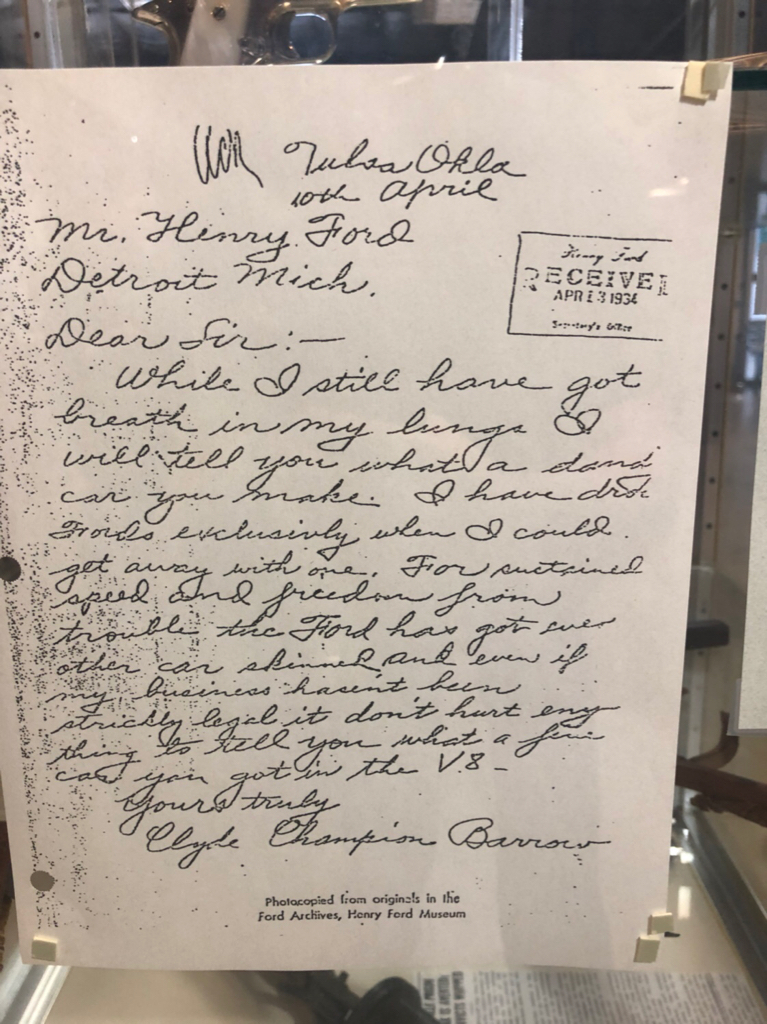 Tulsa Okla
10th April
Mr. Henry Ford
Detroit Mich.
Henry Ford
RECEIVED
APR 13 1934
Secretary's Office
Dear Sir:—
While I still have got
breath in my lungs I
will tell you what a dand
car you make. I have dro
Fords exclusivly when I could
get away with one. For sustained
speed and freedom from
trouble the Ford has got ever
other car skinned, and even if
my business hasen't been
strickly legal it don't hurt eny
thing to tell you what a fine
car you got in the V.8 –
Yours truly
Clyde Champion Barrow
Photocopied from originals in the
Ford Archives, Henry Ford Museum